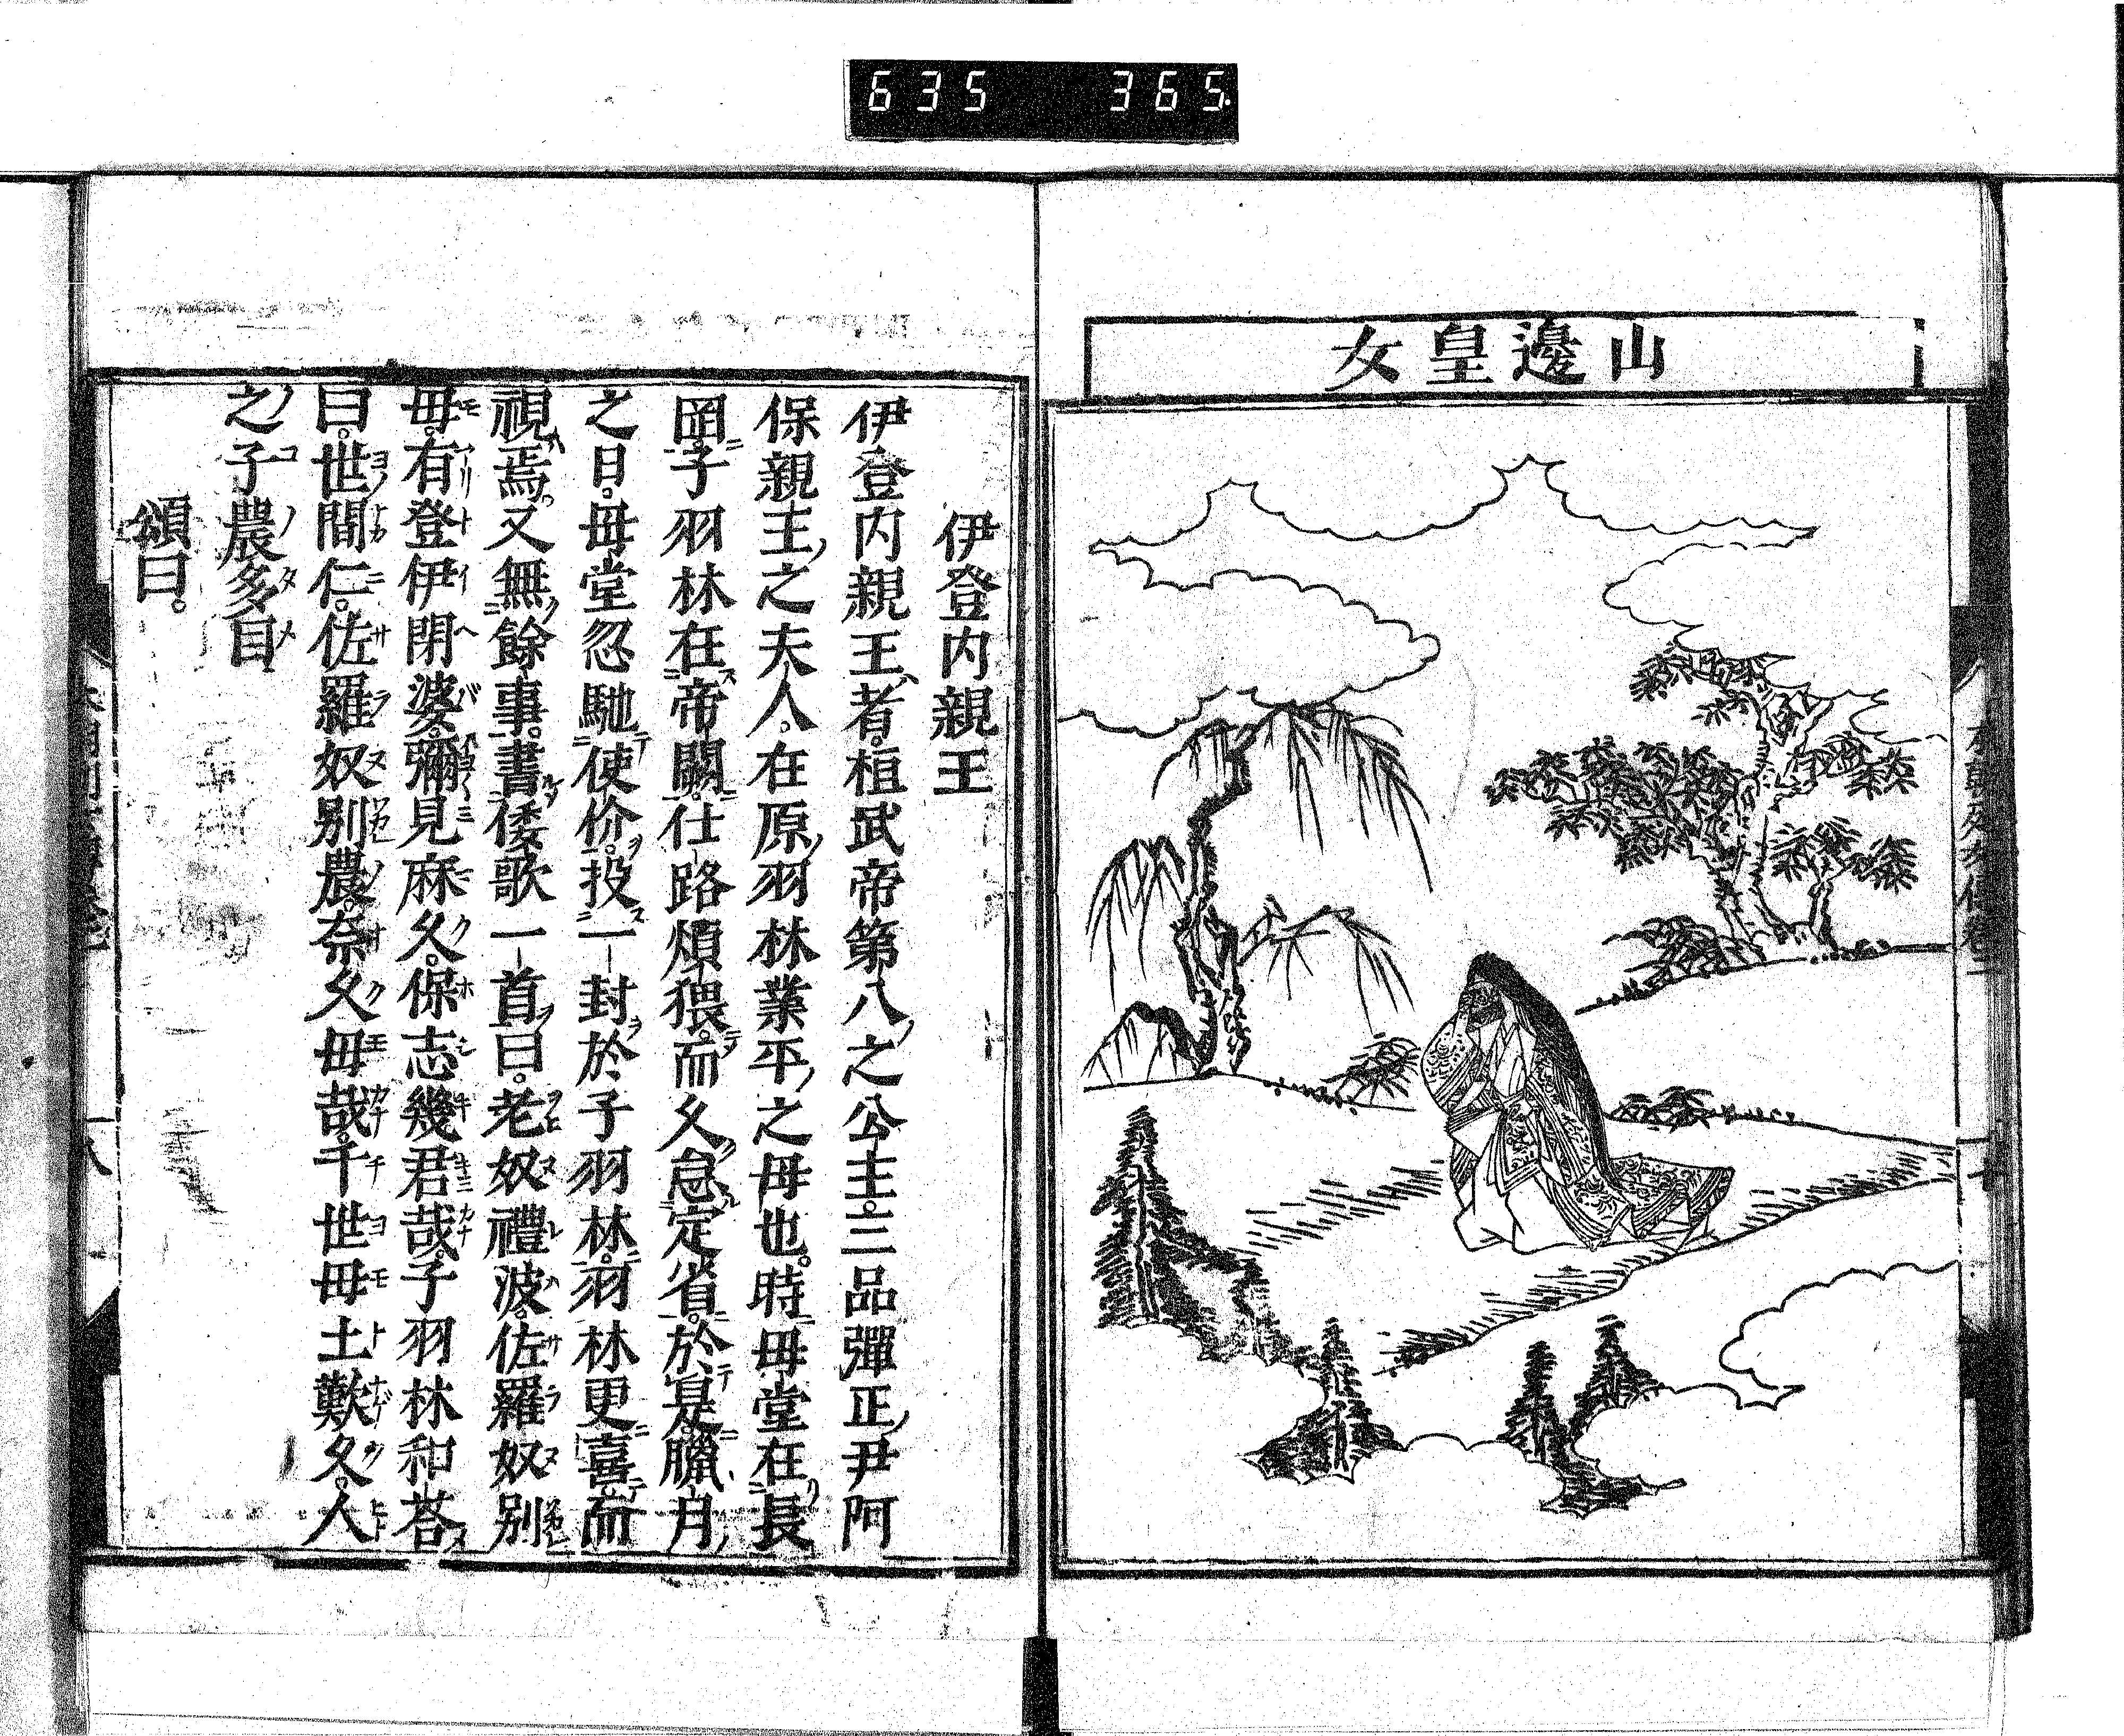 635 365
山邊皇女
伊登内親王
伊登内親王者。桓武帝第八之公主。三品彈正尹阿
保親王之夫人。在原羽林業平之母也。時母堂在長
岡。子羽林在帝闕。仕路煩猥。而久怠定省。於是臘月
之日。母堂忽馳使价。投一封於子羽林。羽林更喜而
視焉。又無餘事。書倭歌一首曰。老奴禮波。佐羅奴別
毋。有登伊閉婆。彌見麻久。保志幾君哉。子羽林和荅
曰。世間仁。佐羅奴別農。奈久毋哉。千世毋土歎久。人
之子農多目
頌曰。